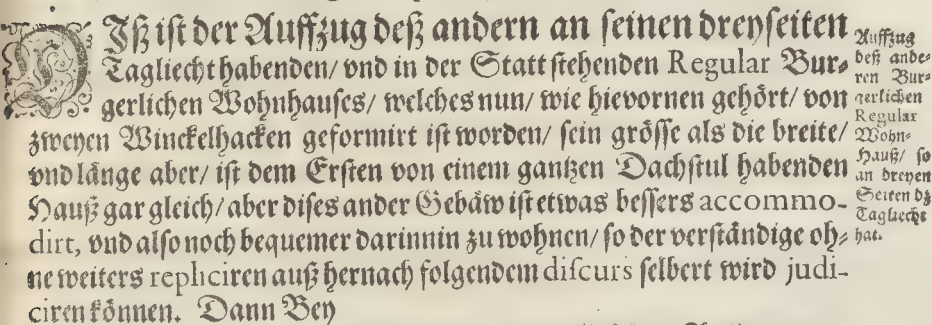 DIß ist der Auffzug deß andern an seinen dreyseiten
Tagliecht habenden/ vnd in der Statt stehenden Regular Bur-
gerlichen Wohnhauses/ welches nun/ wie hievornen gehört/ von
zweyen Winckelhacken geformirt ist worden/ sein grösse als die breite/
vnd länge aber/ ist dem Ersten von einem gantzen Dachstul habenden
Hauß gar gleich/ aber dises ander Gebäw ist etwas bessers accommo-
dirt, vnd also noch bequemer darinnin zu wohnen/ so der verständige oh-
ne weiters repliciren auß hernach folgendem discurs selbert wird judi-
ciren können. Dann Bey
Auffzug
deß ande-
ren Bur-
gerlichen
Regular
Wohn-
Hauß/ so
an dreyen
Seiten dz
Tagliecht
hat.